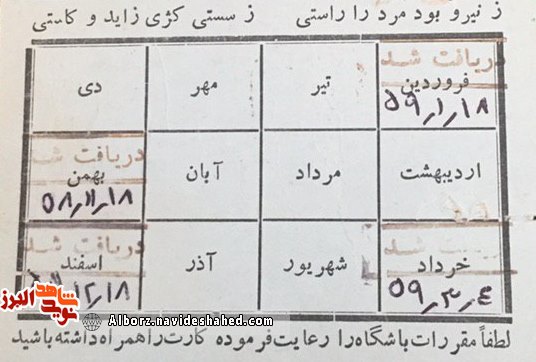 ز نیرو بود مرد را راستی    ز سستی کژی زاید و کاستی
دریافت شد
فروردین    تیر    مهر    دی
۵۹/۱/۱۸
دریافت شد
اردیبهشت    مرداد    آبان    بهمن
۵۸/۱۱/۱۸
دریافت شد    دریافت شد
خرداد    شهریور    آذر    اسفند
۵۹/۳/۴    ۱۲/۱۸
نوید شاهد البرز
Alborz.navideshahed.com
لطفاً مقررات باشگاه را رعایت فرموده کارت را همراه داشته باشید